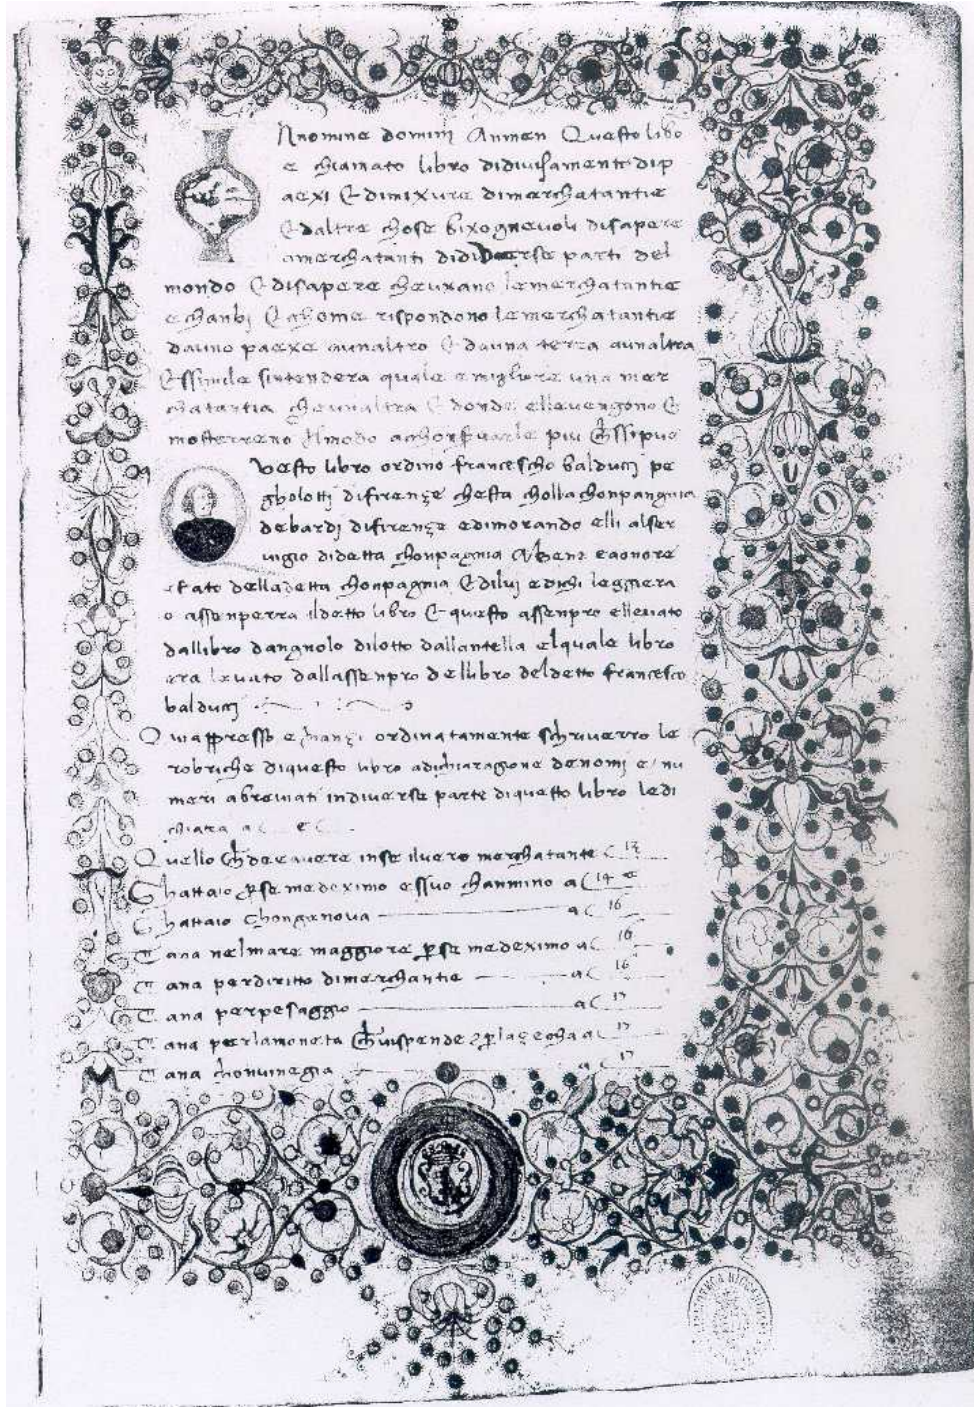 Innomine domini Ammen Questo libro
e chiamato libro didivisamenti dip
aexi E dimixure dimerchatantie
E daltre chose bixognevoli disapere
amerchatanti didiverse parti del
mondo E disapere cheuxano lemerchatantie
e chanbi E chome rispondono lemerchatantie
dauno paexe aunaltro E dauna terra aunaltra
Essimile sintendera quale e migliore una mer
chatantia cheunaltra E donde ellevengono E
mosterreno ilmodo achonservarle piu chessipuo
Questo libro ordino francescho balducci pe
gholotti difirençe chesta cholla chonpangnia
debardi difirençe edimorando elli alser
vigio didetta chonpagnia abene eaonore
stato delladetta chonpagnia E dilui edichi leggiera
o assenperra ildetto libro E questo assenpro ellevato
dallibro dangnolo dilotto dallantella elquale libro
era levato dallassenpro dellibro deldetto francesco
balducci
Qui appresso e innançi ordinatamente schriverro le
robriche diquesto libro adichiaragione denomi e nu
meri abreviati indiverse parte diquesto libro ledi
chiara a c e c
Quello che deeavere inse ilvero merchatante c 13
Ghattaio per se medeximo essuo chanmino a c 14 e
Ghattaio chongenova a c 16
Tana nelmare maggiore per se medeximo a c 16
Tana perdiritto dimerchantie a c 16
Tana perpesaggio a c 17
Tana perlamoneta chevispende e per lazecha a c 17
Tana chonvinegia a c 17